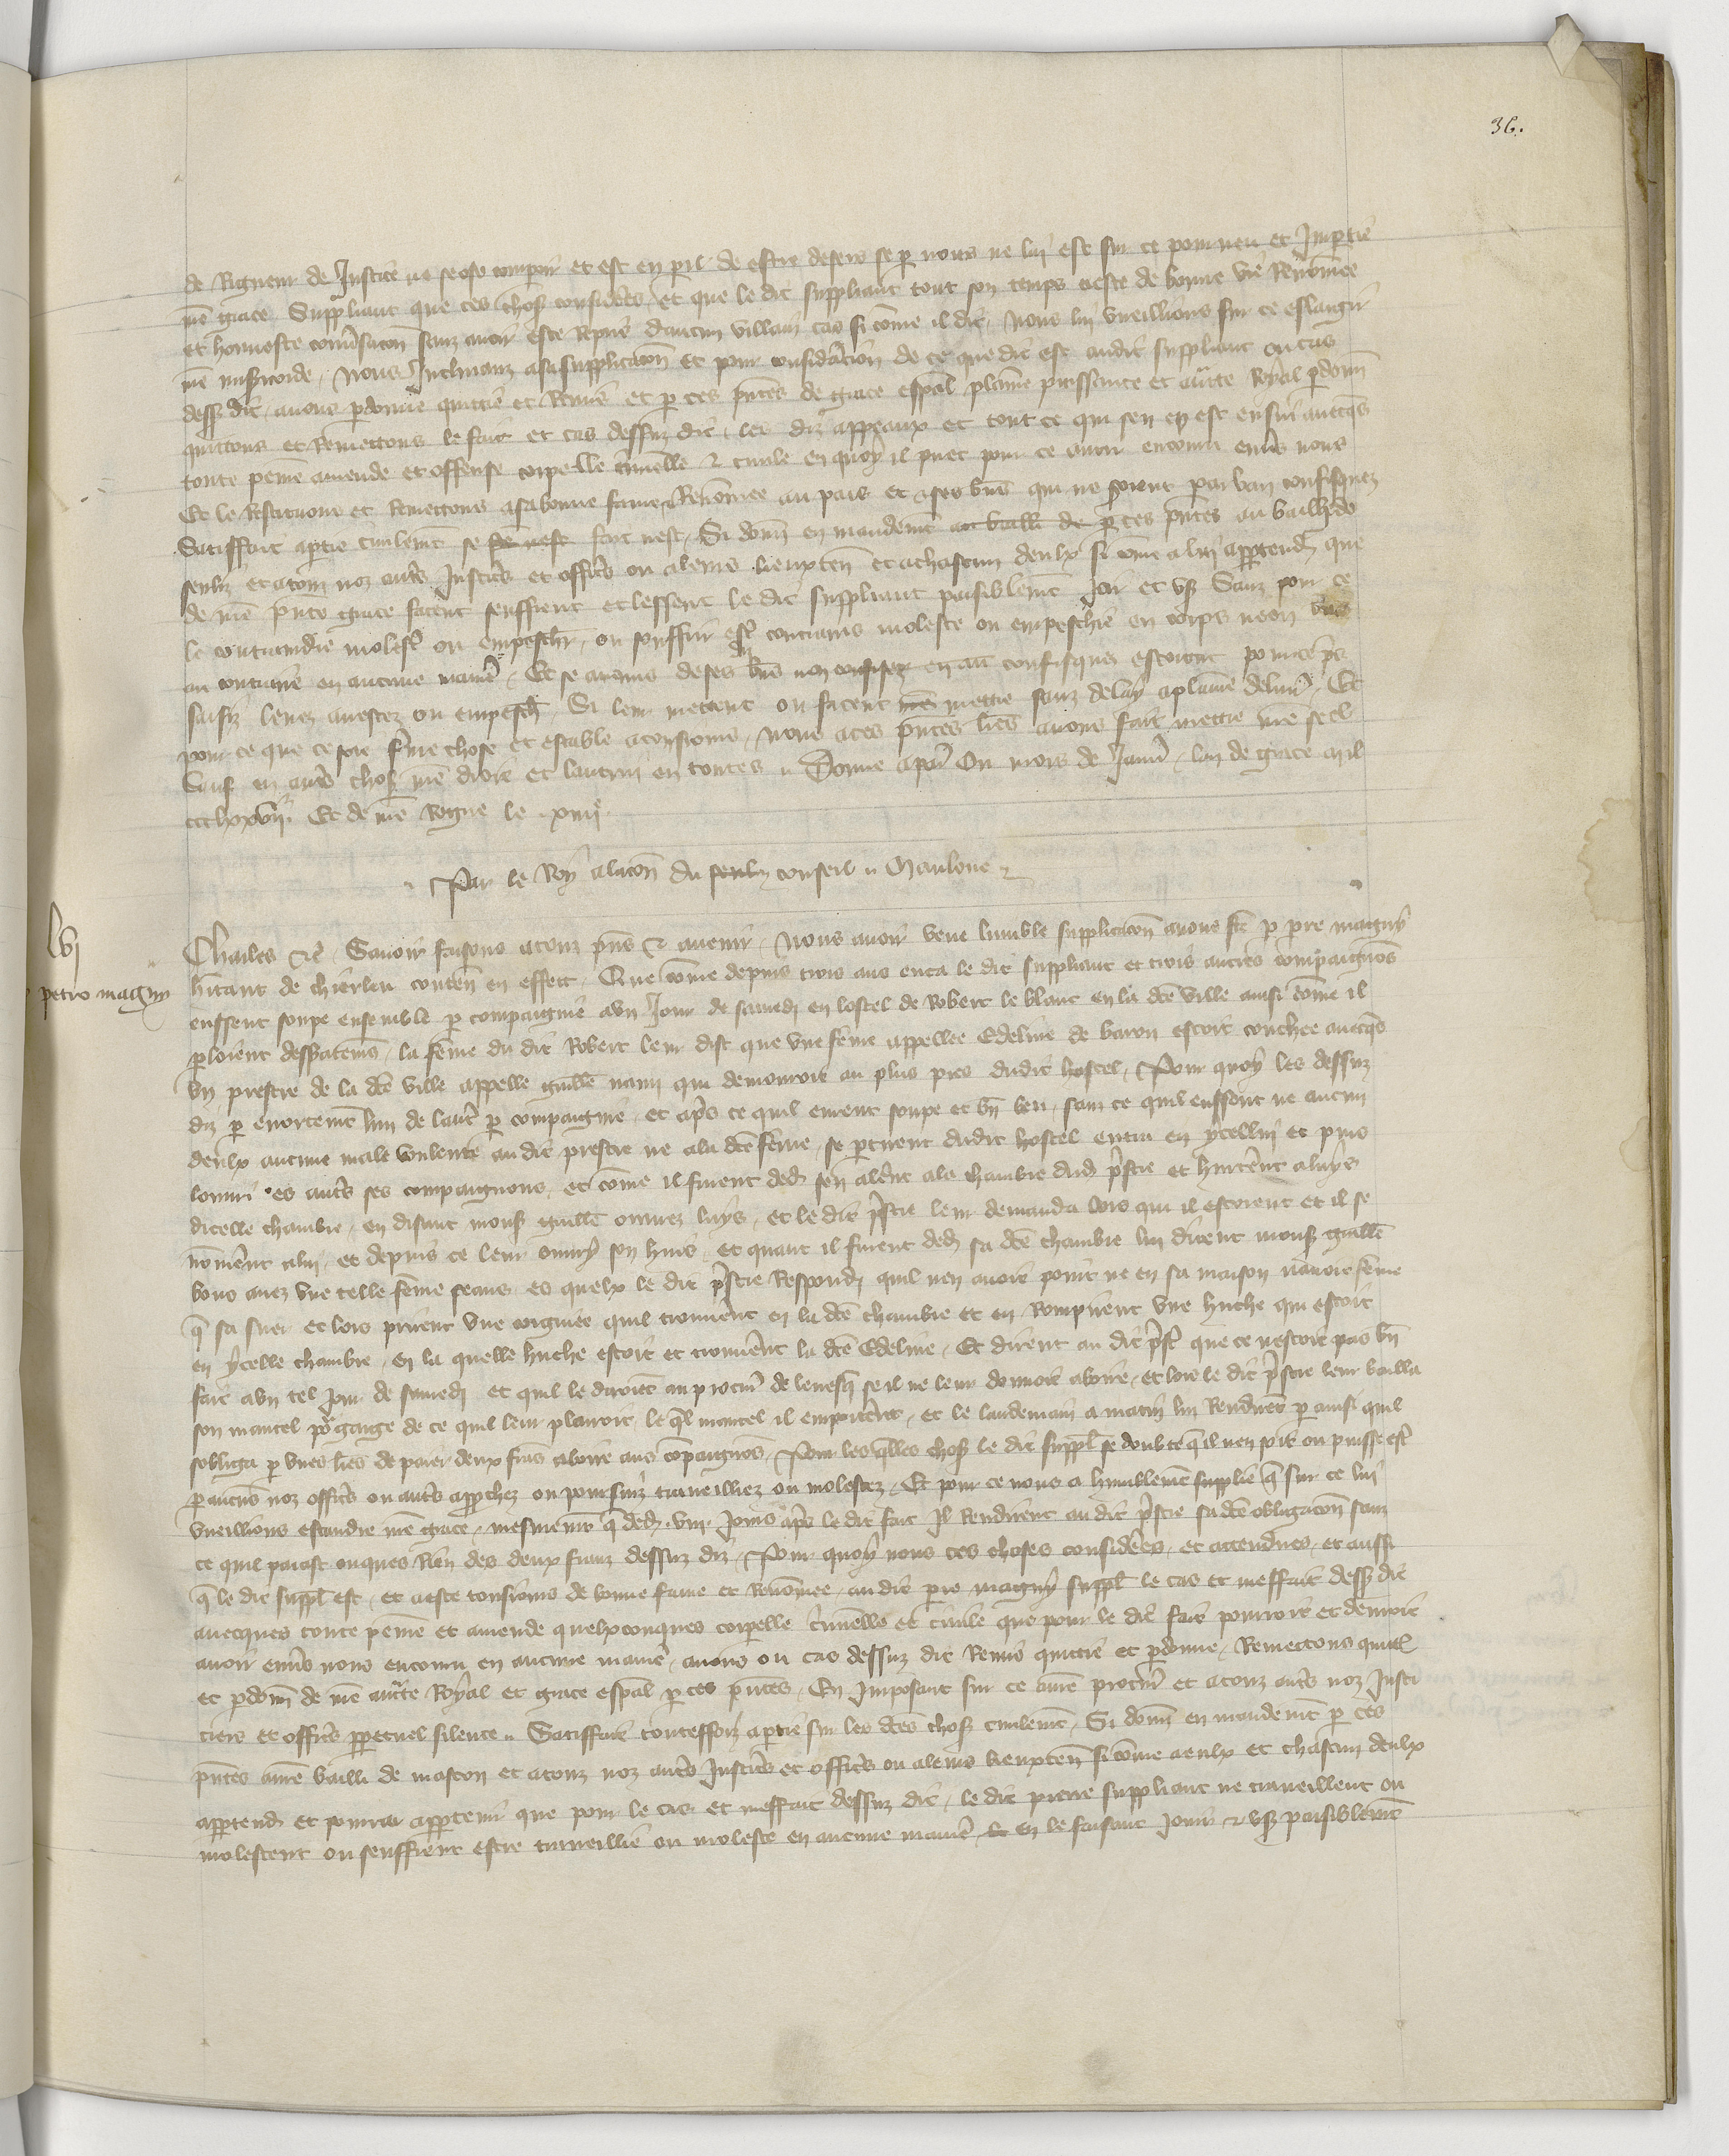 36.
de Rigueur de Justice ne se ose comparoir et est en peril de estre desers se p nous ne lui est sur ce pourveu et Impartie
nre grace Suppliant que ces choses considerees, et que le dit suppliant tout son temps a este de bonne vie Renommee
et honneste conversacon sanz avoir este Reprins daucun villain cas si come il dit, Nous lui vueillions sur ce eslargir
nre misericorde, Nous Inclinanz a sa supplicacon et pour consideracion de ce que dit est audit suppliant ou cas
dessuz dit, avons pardonne quittie et Remis et p ces pntes de grace espal plaine puissance et auctte Royal pardonn
quittons et Remettons le fait et cas dessuz dit, les diz appeaux et tout ce qui sen en est ensui avecques
toute peine amende et offense corporelle criminelle & civile en quoy il puet pour ce avoir encouru envers nous
Et le Restituons et Remettons a sa bonne fame & Renommee au pais et a ses biens qui ne soient par ban confisquez
Satisffait a partie civilemt se fait nest, Si donn en mandemt au bailli de p ces pntes au bailli de
senliz et a touz noz autres Justiciers et officiers ou a leurs lieuxten et a chascun deulx si come a lui appartendra que
de nre pnte grace facent seuffrent et lessent le dit suppliant paisiblemt Joir et user Sanz pour ce
le contraindre molester ou empeschier, ou souffrir estre contrains moleste ou empeschie en corps ne en biens
au contraire en aucune maniere, Et se aucuns de ses biens non confisquez estoient pour ce pris
saisiz levez arrestez ou empeschiez, Si leur mettent ou facent mettre sanz delay a plaine delivrance, Et
pour ce que ce soit ferme chose et estable a tousjours, Nous a ces pntes lres avons fait mettre nre seel
Sauf en autres choses nre droit et lautrui en toutes. Donne a paris Ou mois de Janvier, lan de grace mil
ccclxxvii Et de nre Regne le xiiiie
Par le Roy a la relacon du conseil Maulone
lvj
petro magny
Charles &c. Savoir faisons a touz pns & avenir, Nous avoir veue lumble supplicacon a nous fte p pre magny
hitant de chierlieu conten en effect, Que come depuis trois ans enca le dit suppliant et trois autres compaignons
eussent soupe ensemble p compaignie a un Jour de samedi en lostel de Robert le blanc en la dte ville ainsi come il
ploient desbatemens, la feme du dit Robert leur dist que une feme appellee Edeline de baron estoit couchee avecques
un prestre de la dte ville appelle guille nani qui demouroit au plus pres dudit hostel, Pour quoy les dessuz
diz p enortemt lun de lautre p compaignie, et apres ce quil eurent soupe et bn beu, sanz ce quil eussent ne aucun
deulx aucune male voulente au dit prestre ne a la dte feme, se partirent dudit hostel entra en ycellui et puis
louvri es autres ses compaignons, et come il furent dedens sen alerent a la chambre dud prestre et hurterent a luys
dicelle chambre, en disant mons guille ouvrez luys, et le dit prestre leur demanda lors qui il estoient et il se
nommerent a lui, et depuis ce leur ouvry son huis, et quant il furent dedens sa dte chambre lui dirent mons guille
vous avez une telle feme ceans, es quelx le dit prestre Respondi quil nen avoit point ne en sa maison navoit feme
que sa suer et lors prirent une coigniee quil trouverent en la dte chambre et en Rompirent une huche qui estoit
en ycelle chambre, en la quelle huche estoit et trouverent la dte Edeline, Et dirent au dit prestre que ce nestoit pas bn
fait a un tel Jour de samedi et quil le diroient au procureur de levesque se il ne leur donnoit a boire, et lors le dit prestre leur bailla
son mantel por gaige de ce quil leur plairoit, le quel mantel il emporterent, et le landemain a matin lui Rendirent p ainsi quil
sobliga p unes lres de paier deux frans a boire aus compaignons, Pour les quelles choses le dit suppl se doubte que il nen soit ou puisse estre
p aucuns noz officiers ou autres approchez ou poursuiz traveilliez ou molestez, Et pour ce nous a humblemt supplie que sur ce lui
vueillions estandre nre grace, mesmemt que dedens viii Jours apres le dit fait Il Rendirent au dit prestre sa dte obligacon sanz
ce quil paiast onques Rien des deux franz dessuz diz, Pour quoy nous ces choses considerees, et attendues, et aussi
que le dit suppl est, et a este tousjours de bonne fame et Renommee, au dit pre magny suppl le cas et meffait dessuz dit
avecques toute peine et amende quelxconques corporelle criminelle et civile que pour le dit fait pourroit et devroit
avoir envers nous encouru en aucune maniere, avons ou cas dessuz dit Remis quittie et pardonne, Remettons quittons
et pardonn de nre auctte Royal et grace espal p ces pntes, En Imposant sur ce a nre procureur et a touz autres noz Justi
ciers et officiers perpetuel silence. Satisffait toutesffoiz a partie sur les dtes choses civilemt, Si donn en mandemt p ces
pntes a nre bailli de mascon et a touz noz autres Justiciers et officiers ou a leurs lieuxten si come a eulx et chascun deulx
appartendra et pourra appartenir que pour le cas et meffait dessuz dit, le dit pierre suppliant ne traveillent ou
molestent ou seuffrent estre traveillie ou moleste en aucune maniere, en le faisant Jouir & user paisiblemt